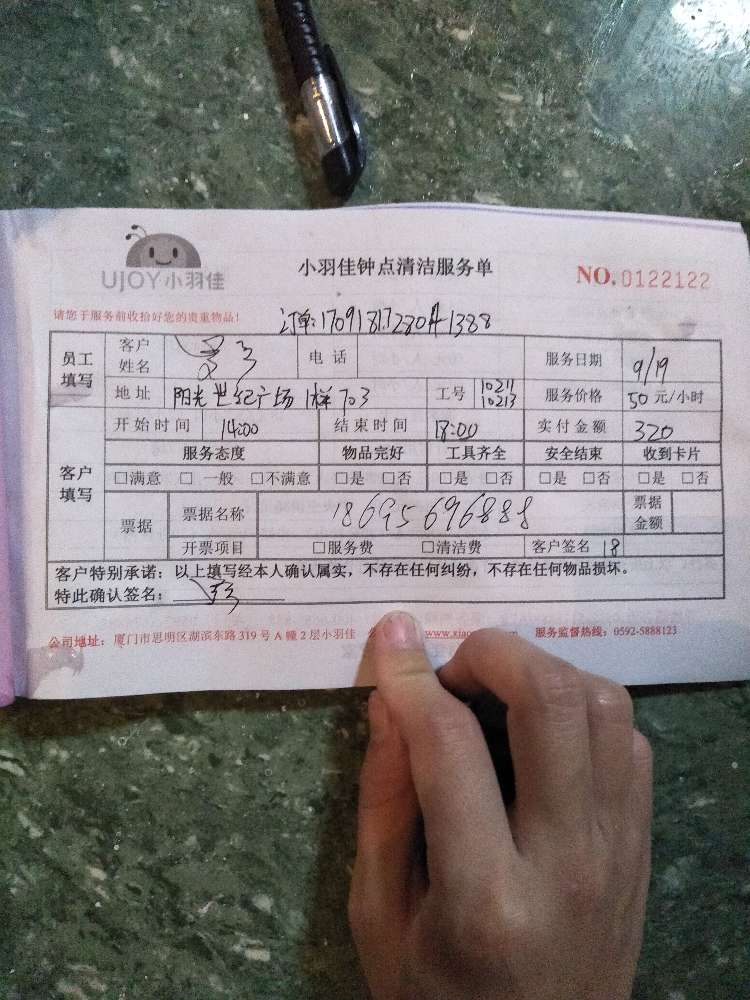 UJOY小羽佳
小羽佳钟点清洁服务单
NO. 0122122
请您于服务前收拾好您的贵重物品!
员工填写 客户姓名 电话 服务日期 9/19
地址 阳光世纪广场 1梯703 工号 10211 10213 服务价格 50元/小时
客户填写 开始时间 14:00 结束时间 18:00 实付金额 320
服务态度 物品完好 工具齐全 安全结束 收到卡片
□满意 □一般 □不满意 □是 □否 □是 □否 □是 □否 □是 □否
票据 票据名称 18695696888 票据金额
开票项目 □服务费 □清洁费 客户签名 18
客户特别承诺：以上填写经本人确认属实，不存在任何纠纷，不存在任何物品损坏。
特此确认签名：
公司地址：厦门市思明区湖滨东路319号A幢2层小羽佳 www.xiao 服务监督热线：0592-5888123